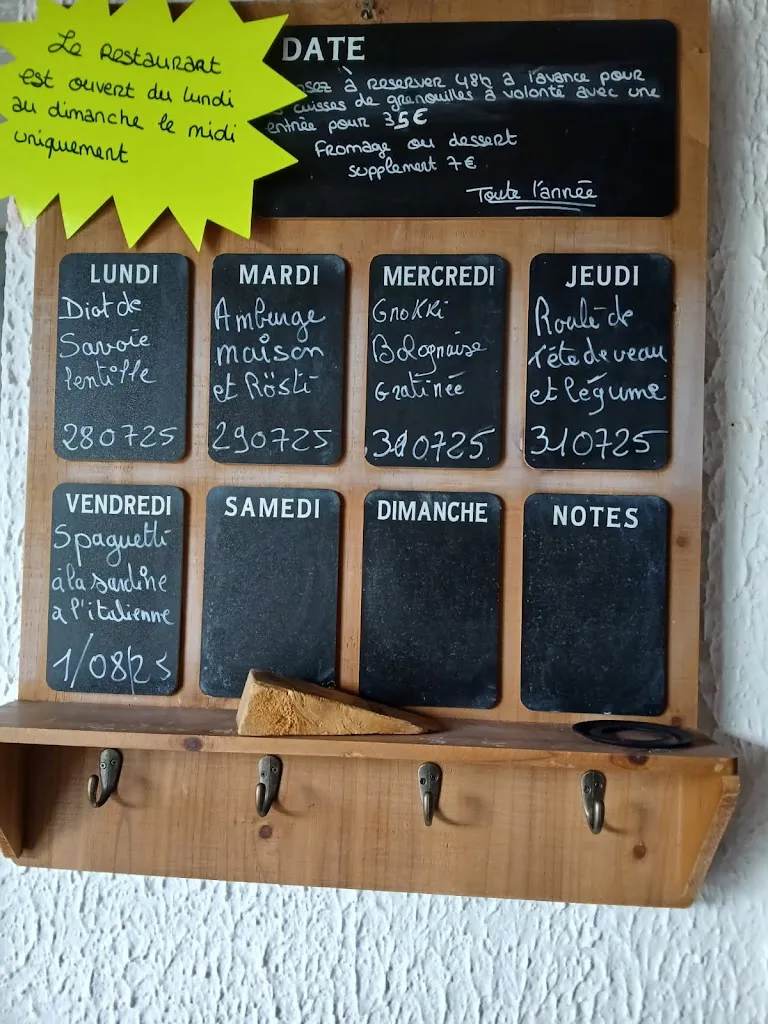 Le Restaurant
est ouvert du lundi
au dimanche le midi
uniquement
DATE
à reserver 48h a l'avance pour
cuisses de grenouilles à volonté avec une
entrée pour 35€
Fromage ou dessert
supplement 7€
Toute l'année
LUNDI
Diot de
Savoie
lentille
280725
MARDI
Amburge
maison
et Rösti
290725
MERCREDI
Gnokki
Bolognaise
Gratinée
300725
JEUDI
Roulé de
Tête de veau
et légume
310725
VENDREDI
Spaguetti
à la sardine
à l'italienne
1/08/25
SAMEDI
DIMANCHE
NOTES